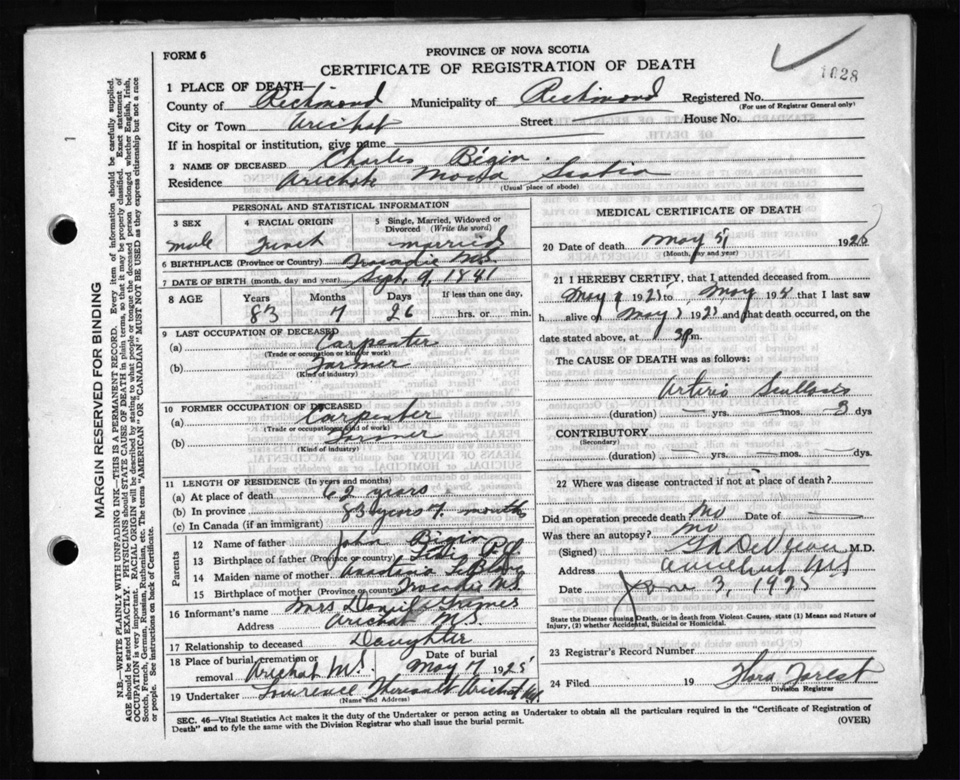 FORM 6
PROVINCE OF NOVA SCOTIA
CERTIFICATE OF REGISTRATION OF DEATH
1028
1 PLACE OF DEATH
County of Richmond Municipality of Richmond Registered No.
(For use of Registrar General only)
City or Town Arichat Street House No.
If in hospital or institution, give name
2 NAME OF DECEASED Charles Bégin
Residence Arichat Nova Scotia
(Usual place of abode)
PERSONAL AND STATISTICAL INFORMATION
3 SEX 4 RACIAL ORIGIN 5 Single, Married, Widowed or Divorced (Write the word)
male French married
6 BIRTHPLACE (Province or Country) Tracadie N.S.
7 DATE OF BIRTH (month, day and year) Sept. 9, 1841
8 AGE Years Months Days If less than one day,
83 7 26 hrs. or min.
9 LAST OCCUPATION OF DECEASED
(a) Carpenter
(Trade or occupation or kind of work)
(b) Farmer
(Kind of industry)
10 FORMER OCCUPATION OF DECEASED
(a) Carpenter
(Trade or occupation or kind of work)
(b) Farmer
(Kind of industry)
11 LENGTH OF RESIDENCE (In years and months)
(a) At place of death 62 years
(b) In province 83 years 7 months
(c) In Canada (if an immigrant)
Parents
12 Name of father John Bégin
13 Birthplace of father (Province or country) P.Q.
14 Maiden name of mother LeBlanc
15 Birthplace of mother (Province or country) Tracadie N.S.
16 Informant's name Mrs Daniel Grimes
Address Arichat N.S.
17 Relationship to deceased Daughter
18 Place of burial, cremation or removal Arichat N.S. Date of burial May 7 1925
19 Undertaker Lawrence Theriault Arichat N.S.
(Name and Address)
MEDICAL CERTIFICATE OF DEATH
20 Date of death May 5 1925
(Month, day and year)
21 I HEREBY CERTIFY, that I attended deceased from
May 1 1925 to May 1925 that I last saw
h alive on May 1 1925 and that death occurred, on
date stated above, at 3 P m.
The CAUSE OF DEATH was as follows:
Arterio
(duration) yrs. mos. 3 dys
CONTRIBUTORY
(Secondary)
(duration) yrs. mos. dys.
22 Where was disease contracted if not at place of death?
Did an operation precede death? No Date of
Was there an autopsy? No
(Signed) M.D.
Address Arichat NS
Date June 3, 1925
State the Disease causing Death, or in death from Violent Causes, state (1) Means and Nature of Injury, (2) whether Accidental, Suicidal or Homicidal.
23 Registrar's Record Number
24 Filed 19 Flora Forest
Division Registrar
SEC. 46—Vital Statistics Act makes it the duty of the Undertaker or person acting as Undertaker to obtain all the particulars required in the "Certificate of Registration of Death" and to fyle the same with the Division Registrar who shall issue the burial permit.
(OVER)
MARGIN RESERVED FOR BINDING
N.B.—WRITE PLAINLY WITH UNFADING INK—THIS IS A PERMANENT RECORD. Every item of information should be carefully supplied. AGE should be stated EXACTLY. PHYSICIANS should STATE CAUSE OF DEATH in plain terms, so that it may be properly classified. Exact statement of OCCUPATION is very important. RACIAL ORIGIN will be described by stating to what people or tongue the deceased person belonged whether English, Irish, Scotch, French, German, Russian, Ruthenian, etc. The terms "AMERICAN" OR "CANADIAN" MUST NOT BE USED as they express citizenship but not a race or people. See instructions on back of Certificate.